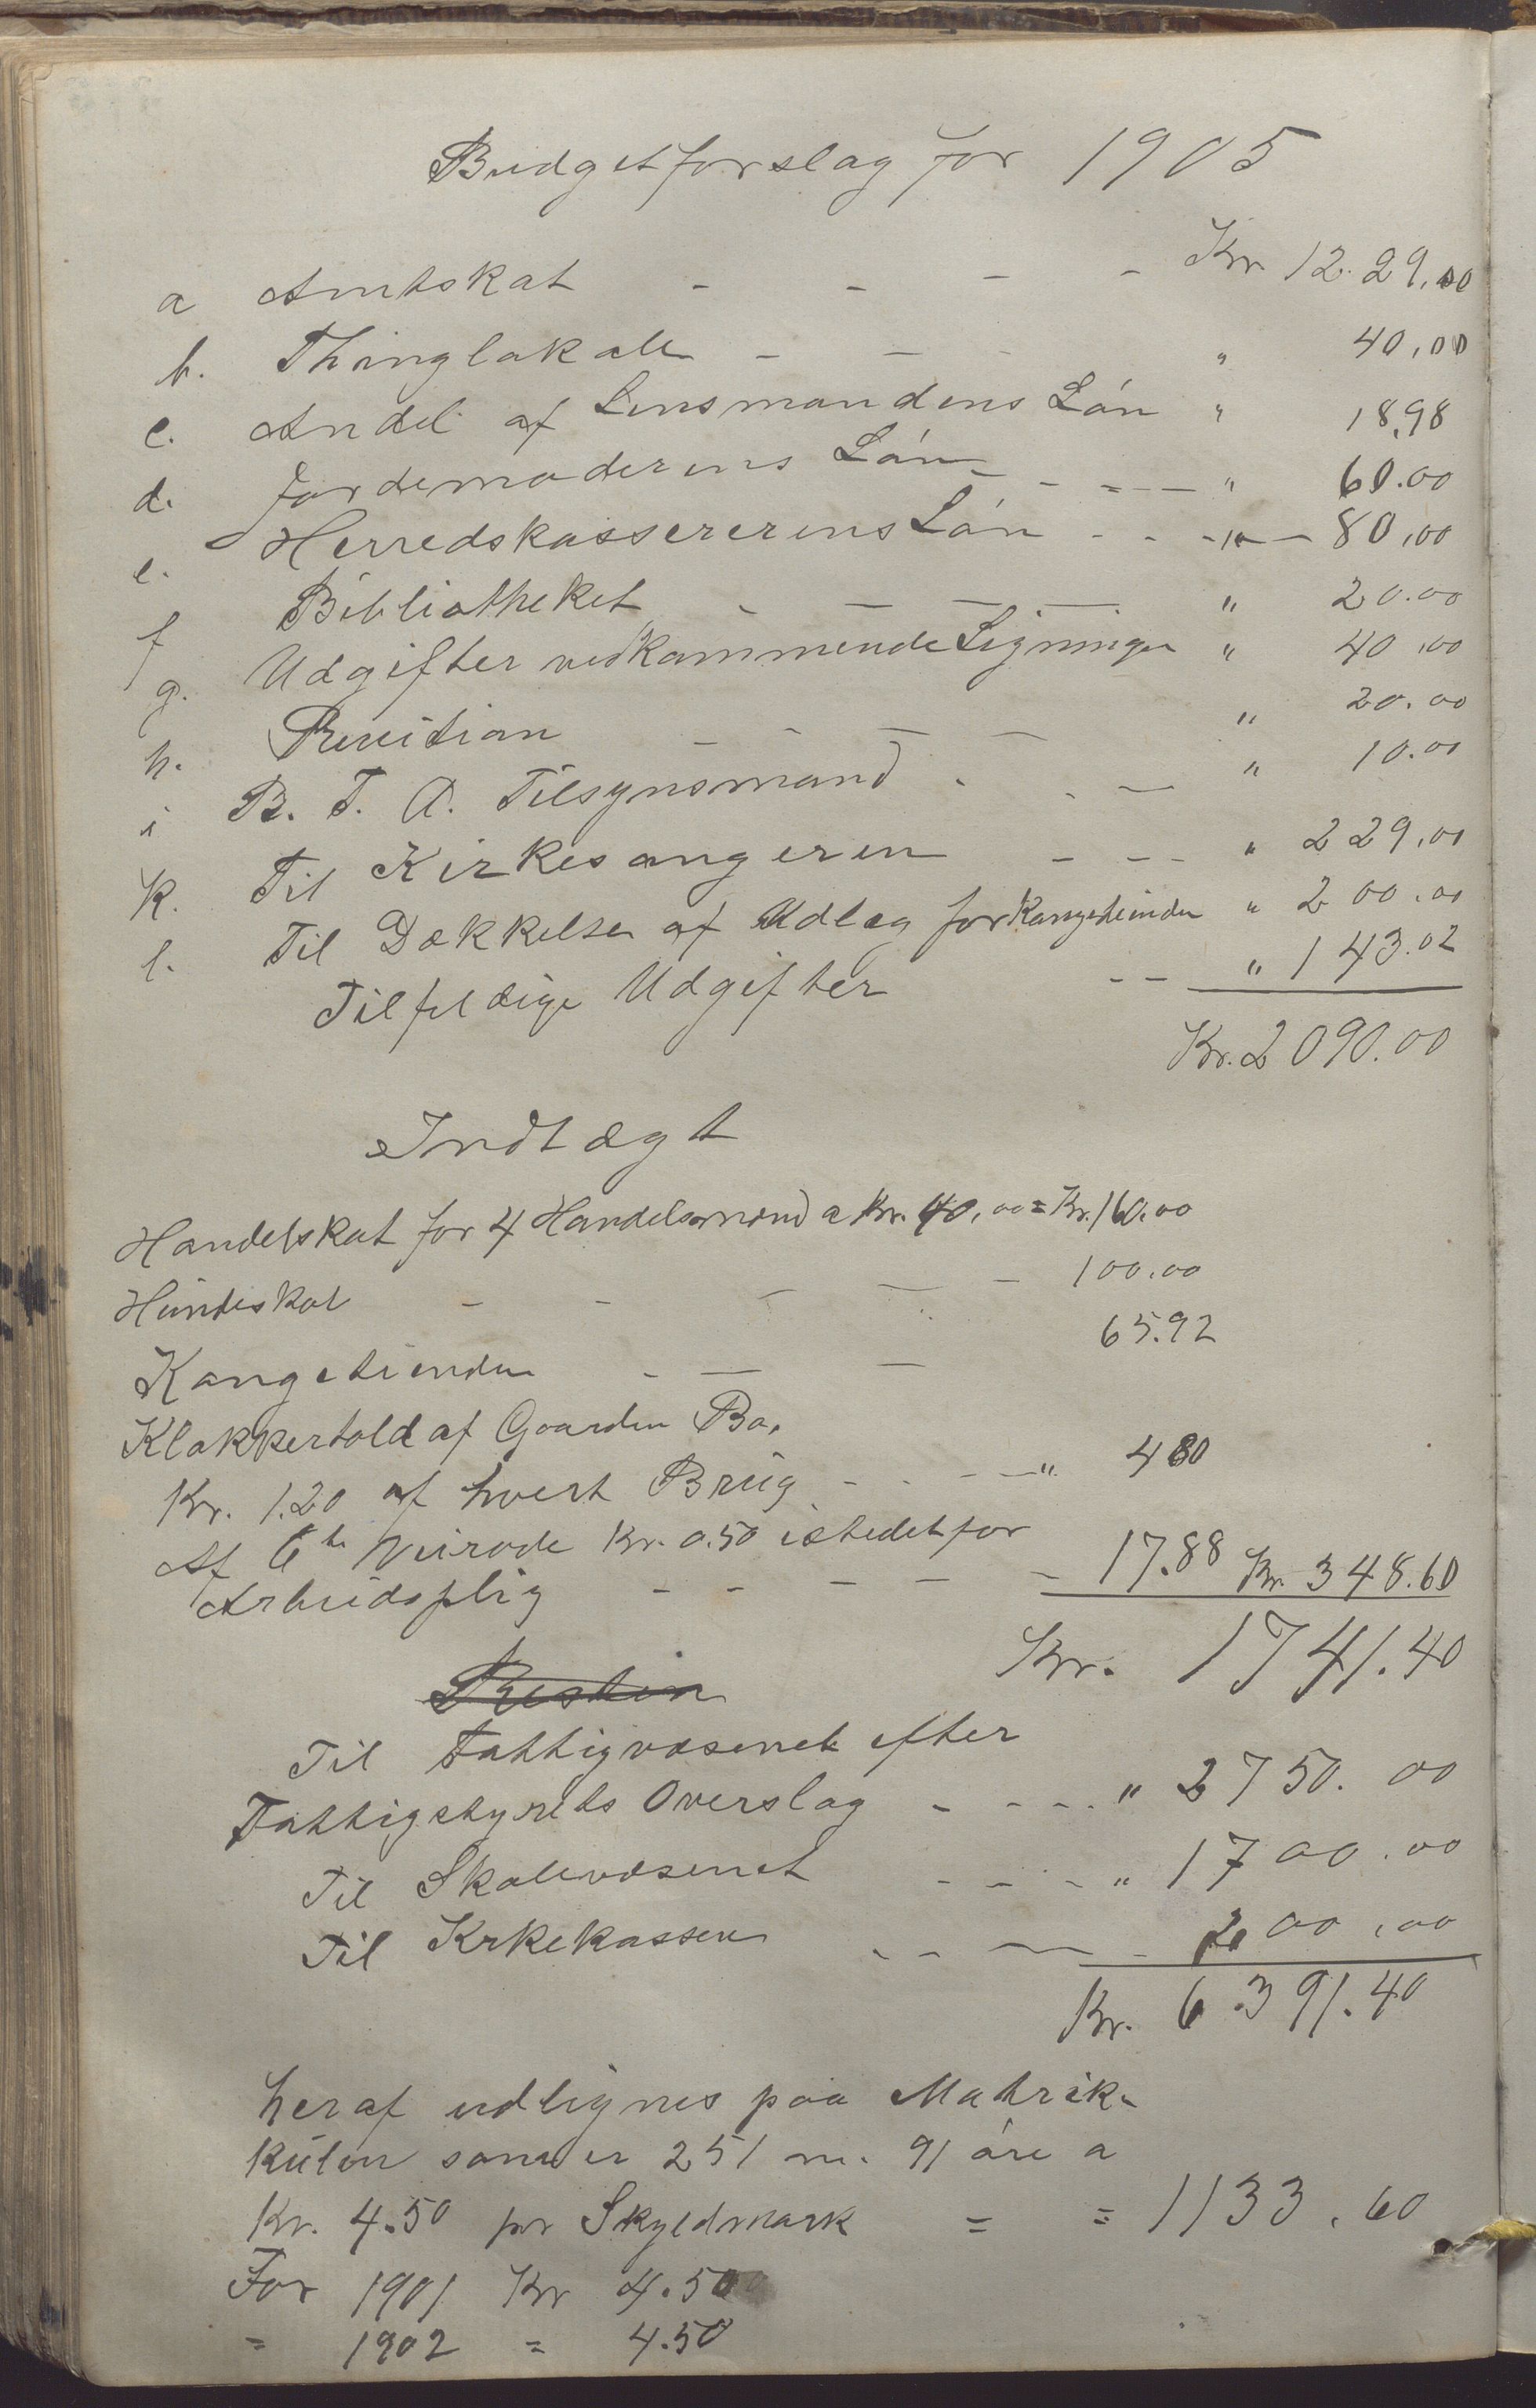 Budgetforslag for 1905
a Amtskat - - - - Kr 12.29,00
b. Thinglokale - - - " 40,00
c. Andel af Lensmandens Lön " 18,98
d. Jordemoderens Lön - - = - " 60.00
e. Herredskassererens Lön - - - " - 80,00
f Bibliotheket - - - - " 20.00
g. Udgifter vedkommende Ligningen " 40,00
h. Revision - - - - " 20.00
i B. T. A. Tilsynsmand - - - " 10.00
k. Til Kirkesangeren - - - " 229,00
l. Til Dækkelse af Udlæg for Kongetienden " 200.00
Tilfeldige Udgifter - - " 143.02
Kr. 2090.00
Indtægt
Handelskat for 4 Handelsmænd a Kr. 40,00 = Kr. 160.00
Hundeskat - - - - - 100.00
Kongetienden - - - 65.92
Klokkertold af Gaarden Bo,
Kr. 1.20 af hvert Brug - - - - " 4 80
Af 6te Veirode Kr. 0.50 istedetfor
Arbeidsplig - - - - - 17.88 Kr. 348.60
Kr. 1741.40
Til Fattigvæsenet efter
Fattigstyrets Overslag - - - - " 2750.00
Til Skolevæsenet - - - " 1700.00
Til Krkekassen - - - - 200,00
Kr. 6391.40
heraf udlignes paa Matrik-
kulen som er 251 m. 91 öre a
Kr. 4.50 pr Skyldmark = = 1133.60
For 1901 Kr 4.50
= 1902 = 4.50